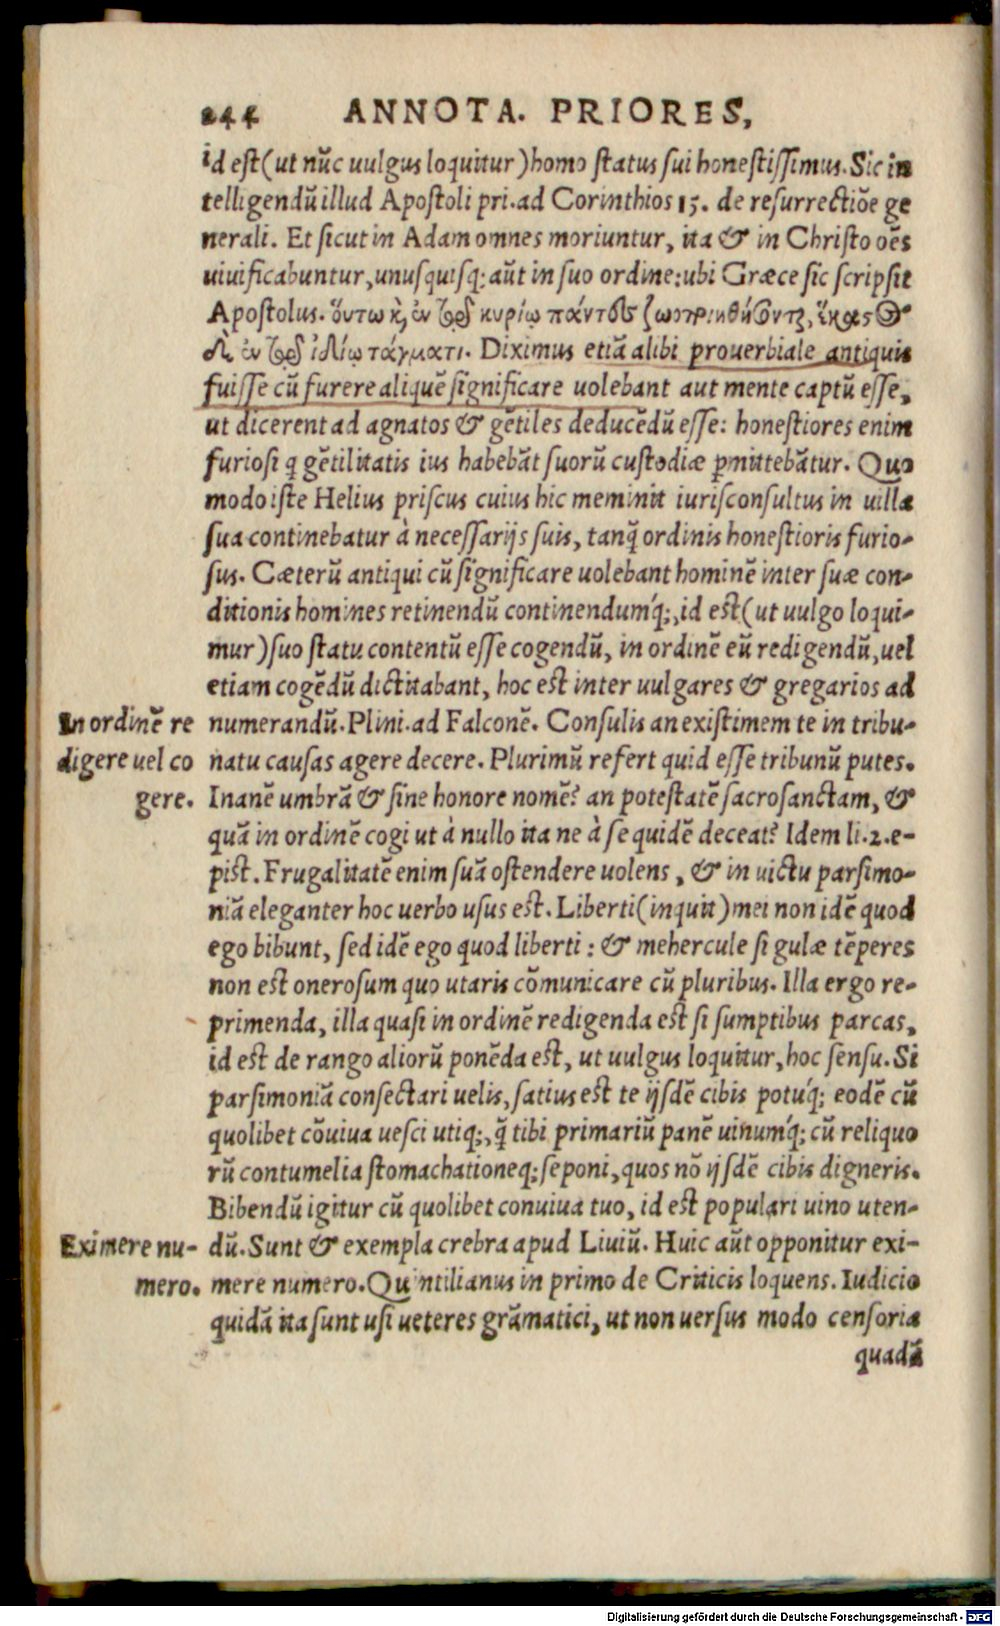 244 ANNOTA. PRIORES,
id est (ut nūc uulgus loquitur) homo status sui honestissimus. Sic in
telligendū illud Apostoli pri. ad Corinthios 15. de resurrectiōe ge
nerali. Et sicut in Adam omnes moriuntur, ita & in Christo oēs
uiuificabuntur, unusquisq; aūt in suo ordine: ubi Græce sic scripsit
Apostolus. ὅυτω κ̀, ἐν κυρίῳ πάντες
ἐν ἰδίῳ τάγματι. Diximus etiā alibi prouerbiale antiquis
fuisse cū furere aliquē significare uolebant aut mente captū esse,
ut dicerent ad agnatos & gētiles deducēdū esse: honestiores enim
furiosi q̄ gētilitatis ius habebāt suorū custodiæ ꝑmittebātur. Quo
modo iste Helius priscus cuius hic meminit iurisconsultus in uilla
sua continebatur à necessarijs suis, tanq̄ ordinis honestioris furio-
sus. Cæterū antiqui cū significare uolebant hominē inter suæ con-
ditionis homines retinendū continendumq́;, id est (ut uulgo loqui-
mur) suo statu contentū esse cogendū, in ordinē eū redigendū, uel
etiam cogēdū dictitabant, hoc est inter uulgares & gregarios ad
In ordinē re numerandū. Plini. ad Falconē. Consulis an existimem te in tribu-
digere uel co natu causas agere decere. Plurimū refert quid esse tribunū putes.
gere. Inanē umbrā & sine honore nomē? an potestatē sacrosanctam, &
quā in ordinē cogi ut à nullo ita ne à se quidē deceat? Idem li. 2. e-
pist. Frugalitatē enim suā ostendere uolens, & in uictu parsimo-
niā eleganter hoc uerbo usus est. Liberti (inquit) mei non idē quod
ego bibunt, sed idē ego quod liberti: & mehercule si gulæ tēperes
non est onerosum quo utaris cōmunicare cū pluribus. Illa ergo re-
primenda, illa quasi in ordinē redigenda est si sumptibus parcas,
id est de rango aliorū ponēda est, ut uulgus loquitur, hoc sensu. Si
parsimoniā consectari uelis, satius est te ijsdē cibis potuq́; eodē cū
quolibet cōuiua uesci utiq;, q̄ tibi primariū panē uinumq́; cū reliquo
rū contumelia stomachationeq; seponi, quos nō ijsdē cibis digneris.
Bibendū igitur cū quolibet conuiua tuo, id est populari uino uten-
Eximere nu- dū. Sunt & exempla crebra apud Liuiū. Huic aūt opponitur exi-
mero. mere numero. Quintilianus in primo de Criticis loquens. Iudicio
quidā ita sunt usi ueteres grāmatici, ut non uersus modo censoria
quadā
Digitalisierung gefördert durch die Deutsche Forschungsgemeinschaft - DFG